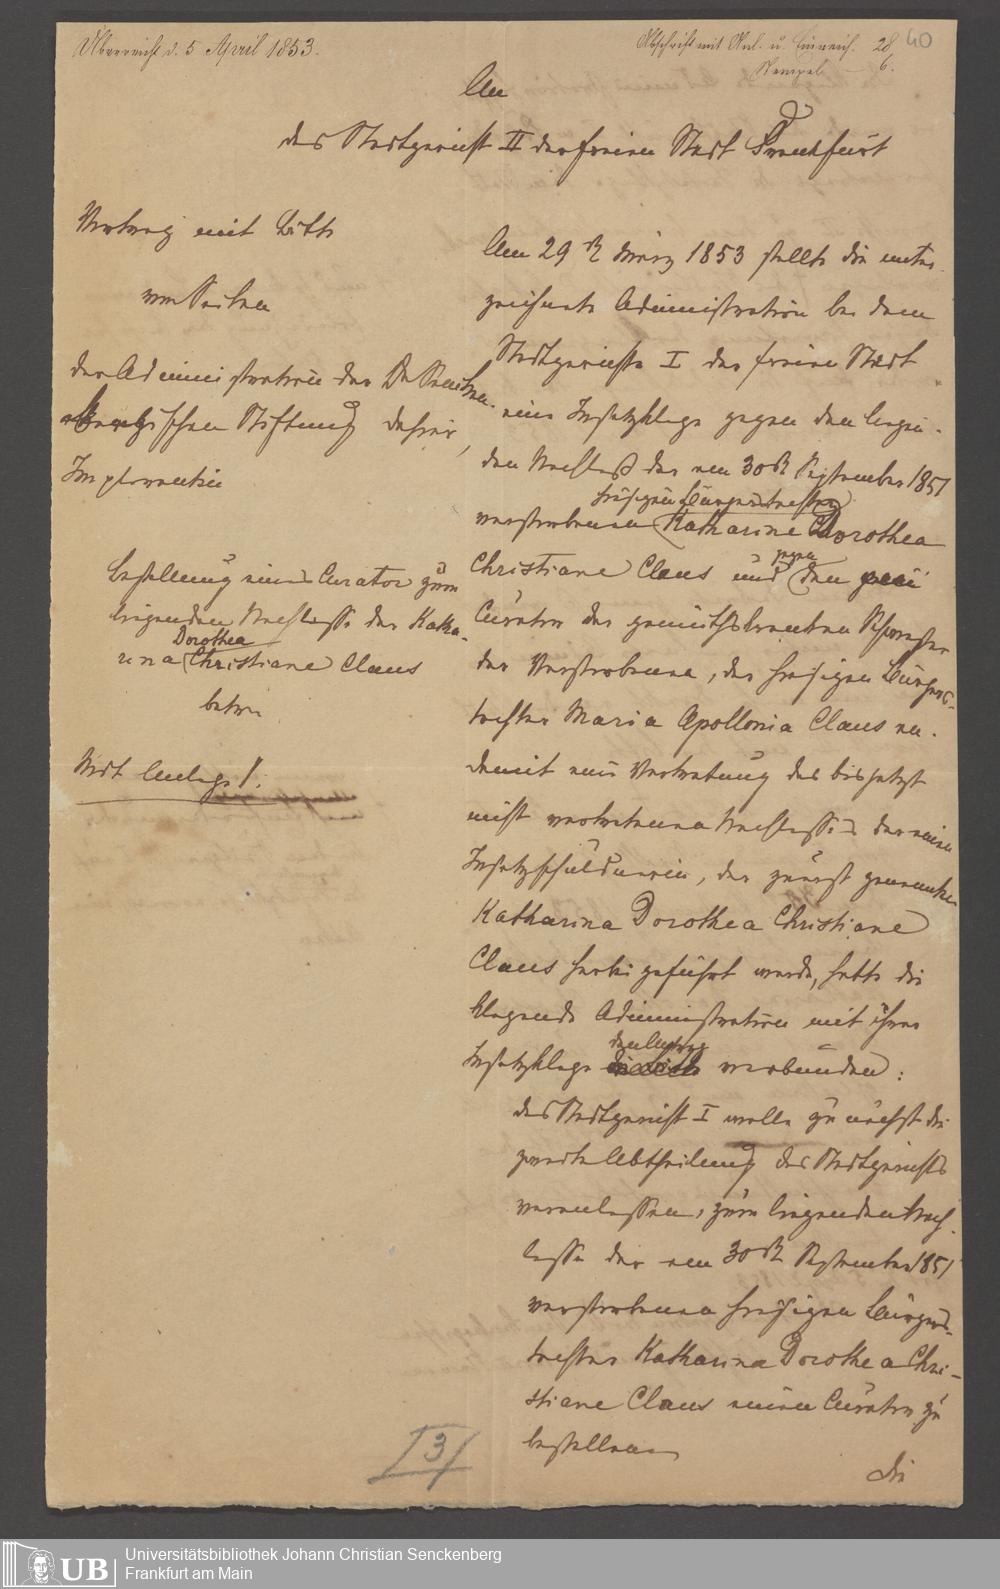 Überreicht d. 5 April 1853.
Abschrift mit Anl. u. Einreich. 28
Stempel — 6.
40
An
das Stadtgericht II der freien Stadt Frankfurt
Vortrag mit Bitte
von Seiten
der Administration der Dr Senckenbergischen Stiftung dahier,
Implorantin
Bestellung eines Curator zum
liegenden Nachlasse der Katha-
rina Dorothea Christiane Claus
betr.
Mit Anlage 1.
Am 29ten März 1853 stellte die unter-
zeichnete Administration bei dem
Stadtgerichte I der freien Stadt
eine Insatzklage gegen den liegen-
den Nachlaß der am 30ten September 1851
verstorbenen hiesigen Bürgerstochter Katharine Dorothea
Christiane Claus und gegen den
Curator der gemüthskranken Schwester
der Verstorbenen, der hiesigen Bürgers-
tochter Maria Apollonia Claus an.
Damit eine Vertretung des bis jetzt
nicht vertretenen Nachlasses der einen
Insatzschuldnerin, der zuerst genannten
Katharina Dorothea Christiane
Claus herbeigeführt werde, hatte die
klagende Administration mit ihrer
Insatzklage den Antrag verbunden:
das Stadtgericht I wolle zunächst die
zweite Abtheilung des Stadtgerichts
veranlassen, zum liegenden Nach-
lasse der am 30ten September 1851
verstorbenen hiesigen Bürgers-
tochter Katharina Dorothea Chri-
stiane Claus einen Curator zu
bestellen.
Die
3
UB
Universitätsbibliothek Johann Christian Senckenberg
Frankfurt am Main